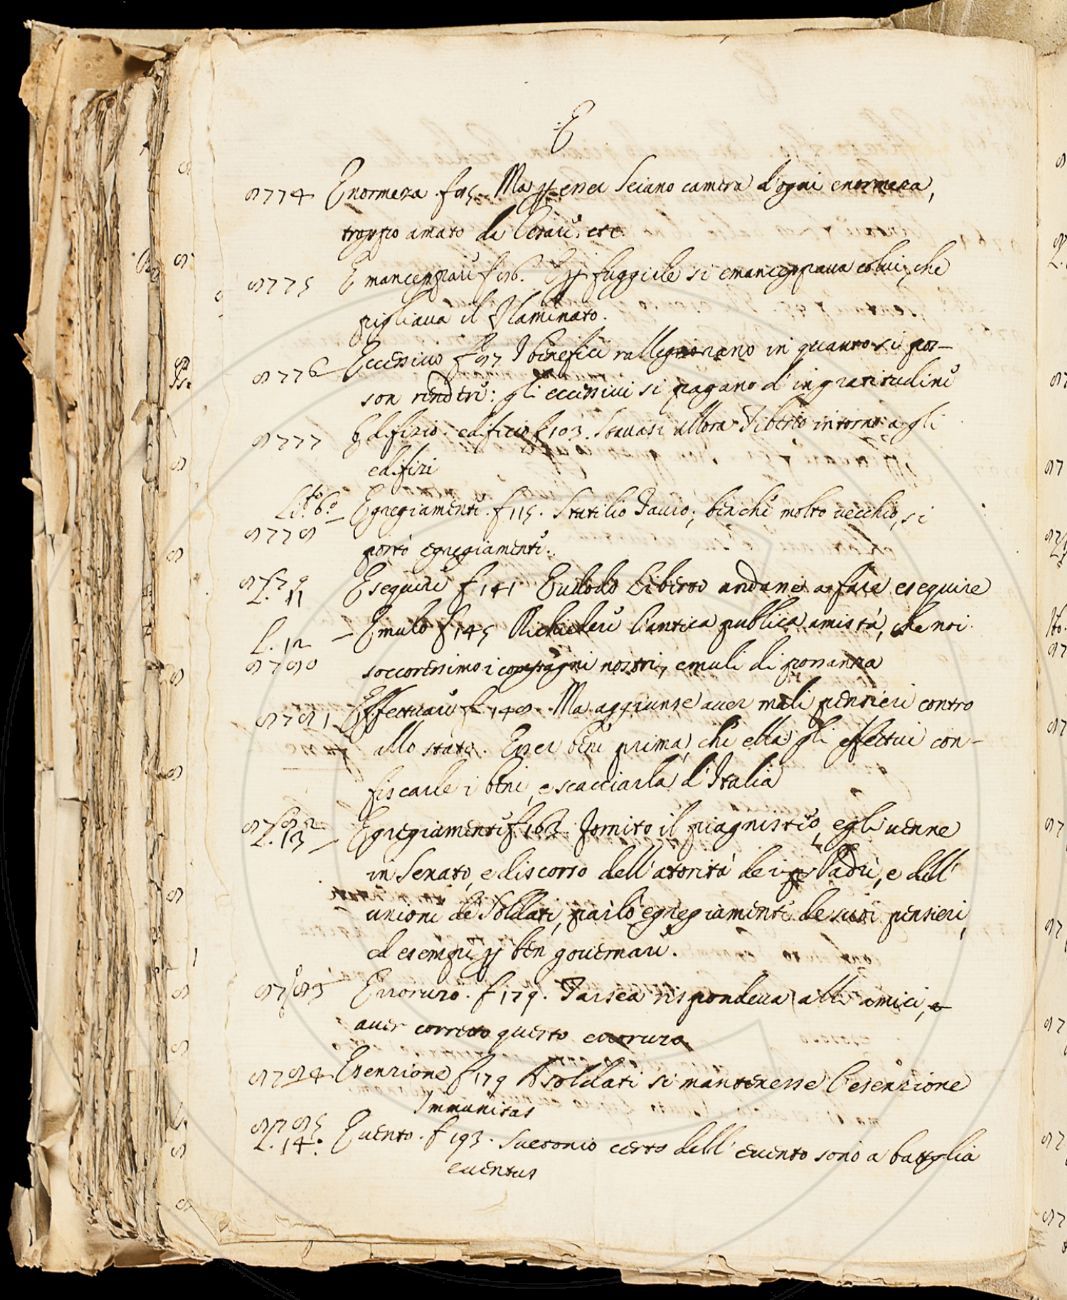 E
9774 Enormezza. f. 95. Ma per esser Sciano camera d'ogni enormezza,
troppo amato da Cesare. etc.
9775 Emancepare f. 96. Che fuggirle si emancippava colui, che
pigliava il Flaminato.
9776 Eccessivo f. 97 I benefici rallegrano in quanto si pos-
son rendere: gli eccessivi si pagano d'ingratitudine
9777 Edifizio. edificio f. 103. Stavasi allora Tiberio intorno agli
edifizi
Lito 6o
9778 Egregiamente. f. 115. Statilio Tauro; benché molto vecchio, si
portò egregiamente.
9779
L. 11 Eseguire f. 141 Evodo Liberto andane a fare eseguire
L. 12 Emulo f. 145 Richiedere l'antica publica amistà, che noi
9780 soccoressimo i compagni nostri, emuli di possanza
9781 Effettuare f. 148. Ma aggiunse aver mali pensieri contro
allo stato. Esser bene prima, che ella gli effettui con-
fiscarle i beni, e scacciarla d'Italia
9782
L. 13 Egregiamente f. 163. Fornito il piagnisteo, egli venne
in Senato, e discorso dell'atorità de i Padri, e dell'
unione de Soldati, parlò egregiamente de suoi pensieri,
ed esempi per ben governare.
9783 Erroruzo. f. 179. Tarsea rispondeva alli amici, e
aver corretto questo erroruzo
9784 Esenzione f. 179 A soldati si mantenesse l'esenzione
Immunitas
9785
L. 14. Evento. f. 193. Suetonio certo dell'evento sonò a battaglia
eventus